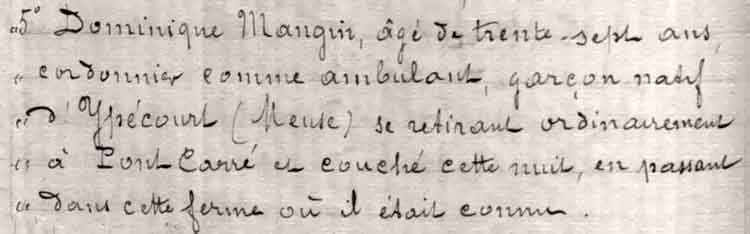 " 5° Dominique Mangin, âgé de trente-sept ans,
" cordonnier comme ambulant, garçon natif
" d'Ypécourt (Meuse) se retirant ordinairement
" à Pont Carré et couché cette nuit, en passant
" dans cette ferme où il était connu.